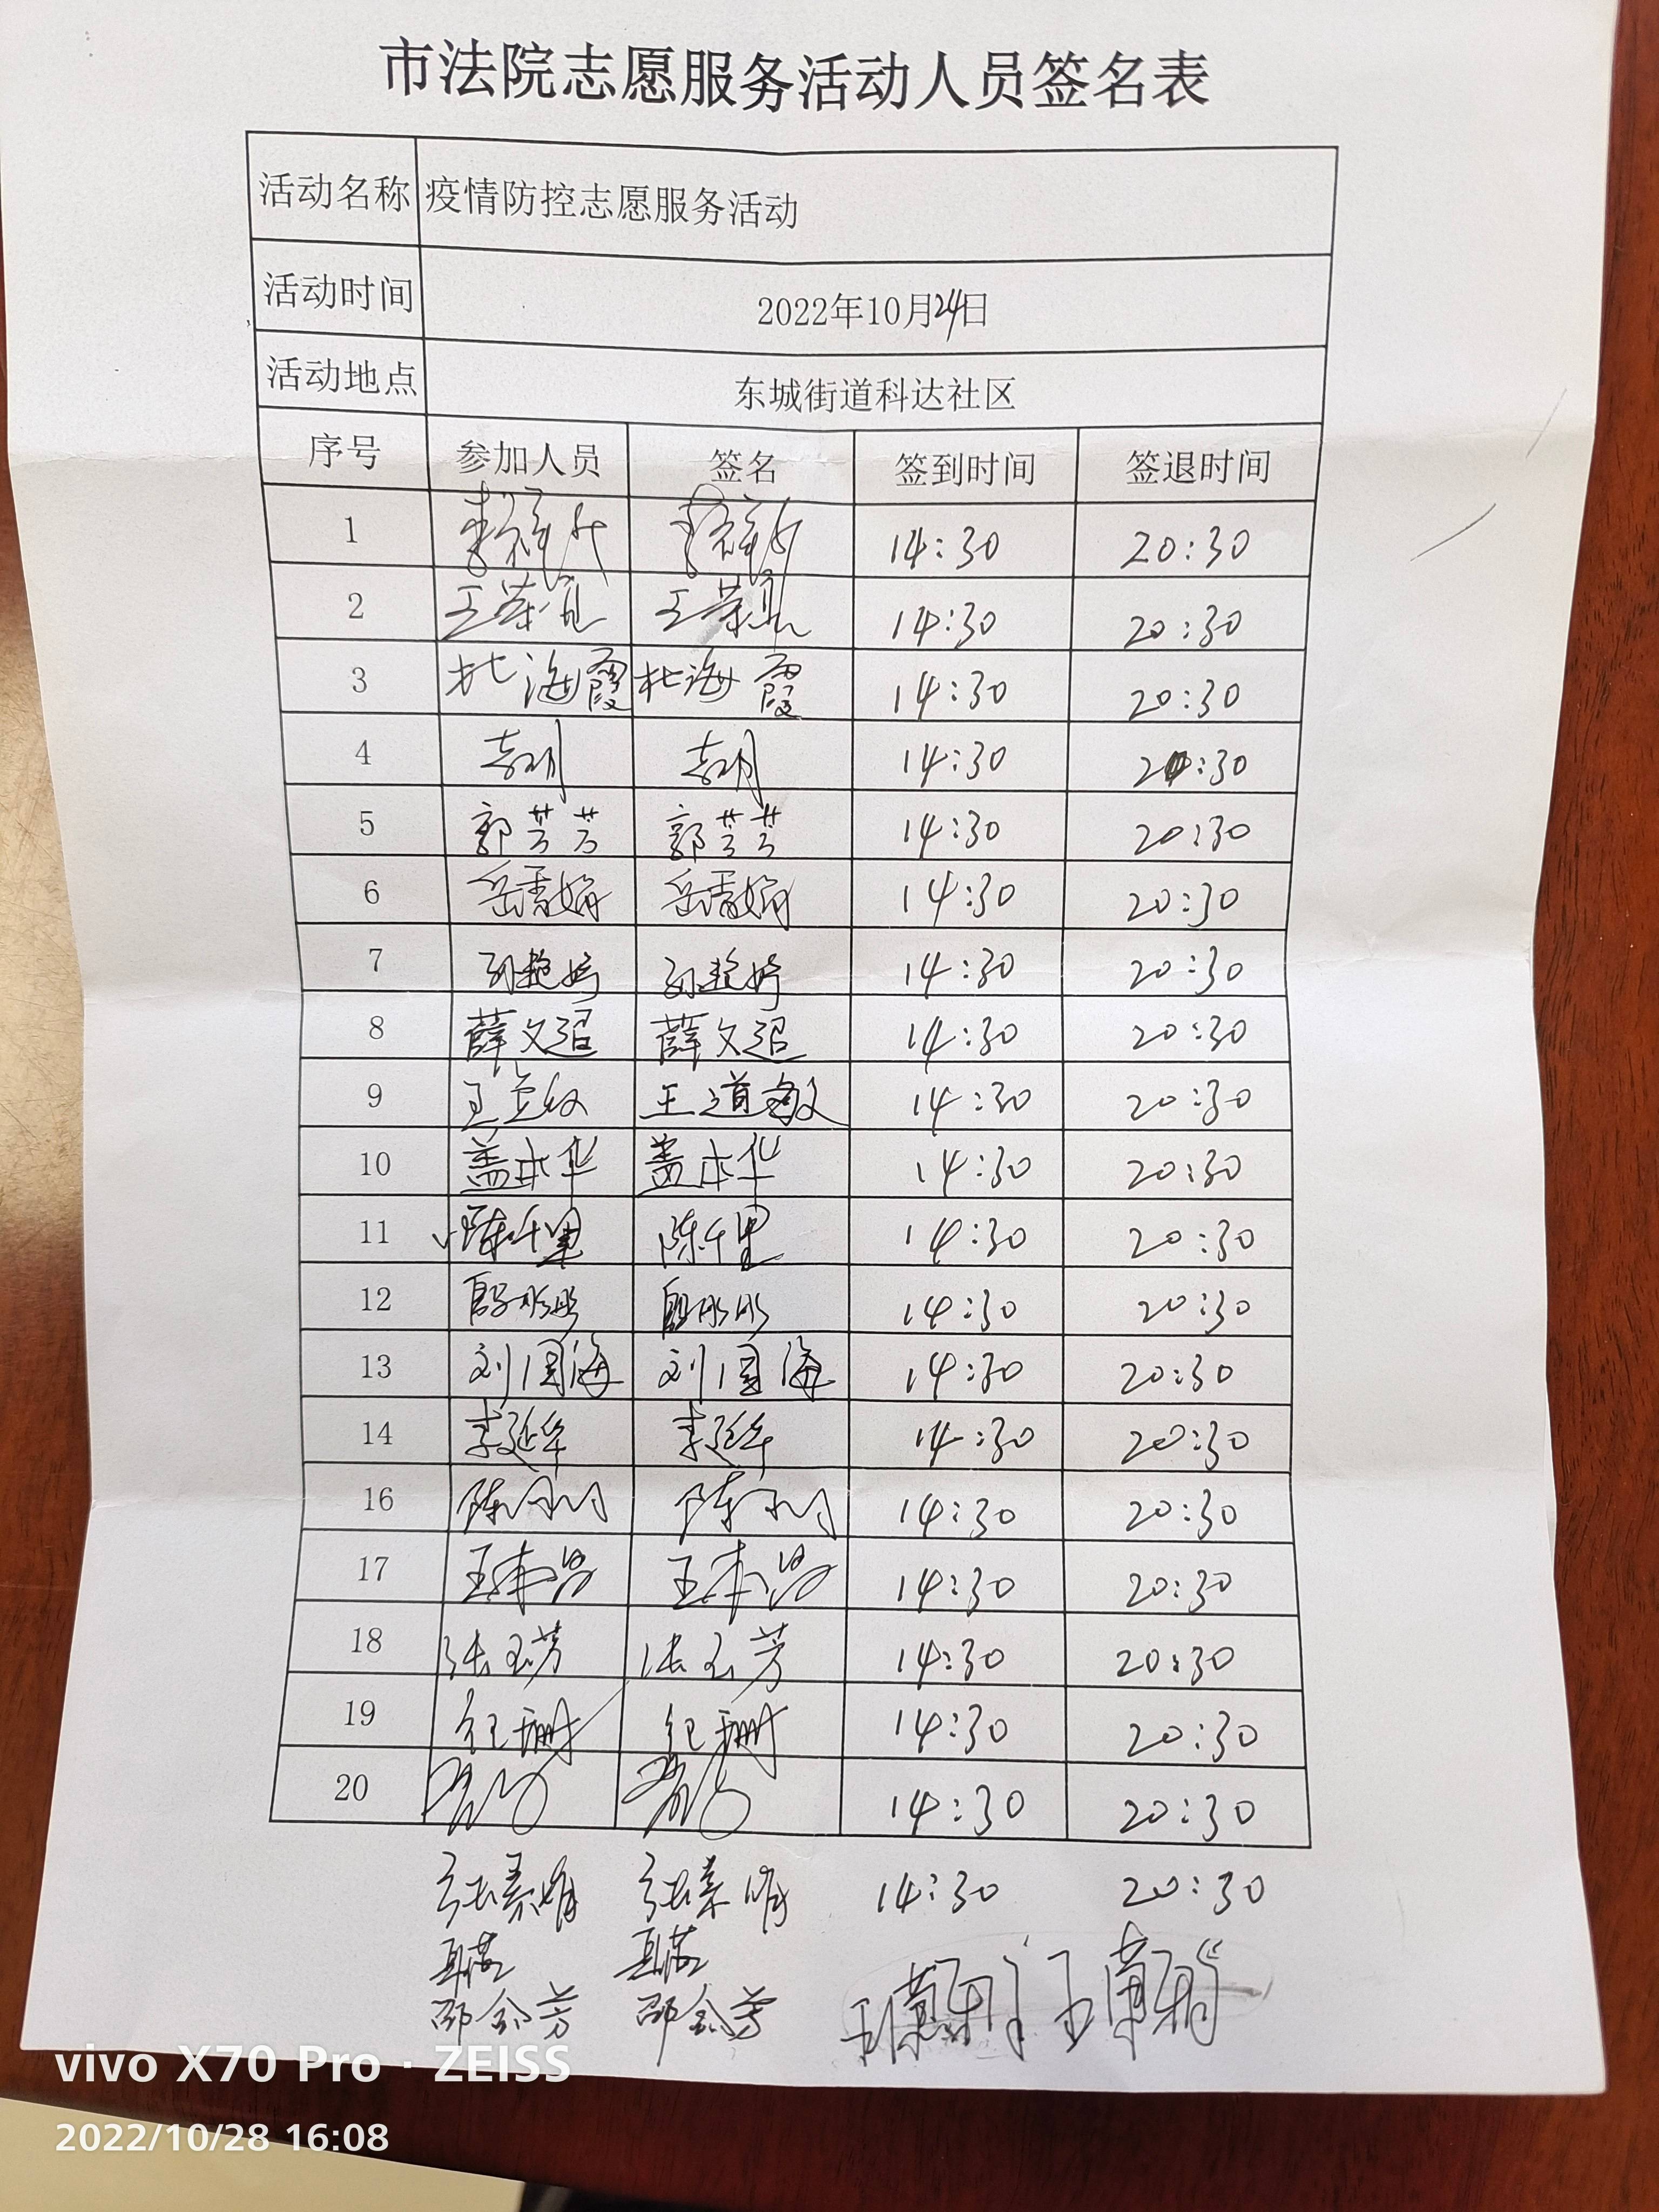 市法院志愿服务活动人员签名表
活动名称 疫情防控志愿服务活动
活动时间 2022年10月24日
活动地点 东城街道科达社区
序号 参加人员 签名 签到时间 签退时间
1 14:30 20:30
2 王荣 王荣 14:30 20:30
3 杜海霞 杜海霞 14:30 20:30
4 14:30 20:30
5 郭芳芳 郭芳芳 14:30 20:30
6 岳秀娟 岳秀娟 14:30 20:30
7 孙艳婷 孙艳婷 14:30 20:30
8 薛文迢 薛文迢 14:30 20:30
9 王道敏 王道敏 14:30 20:30
10 盖本华 盖本华 14:30 20:30
11 陈千里 陈千里 14:30 20:30
12 殷彤彤 殷彤彤 14:30 20:30
13 刘国海 刘国海 14:30 20:30
14 李延华 李延华 14:30 20:30
16 陈 陈 14:30 20:30
17 王 王 14:30 20:30
18 张玉芳 张玉芳 14:30 20:30
19 纪珊 纪珊 14:30 20:30
20 14:30 20:30
张素娟 张素娟 14:30 20:30
聂诺 聂诺
邵金芳 邵金芳
vivo X70 Pro · ZEISS
2022/10/28 16:08